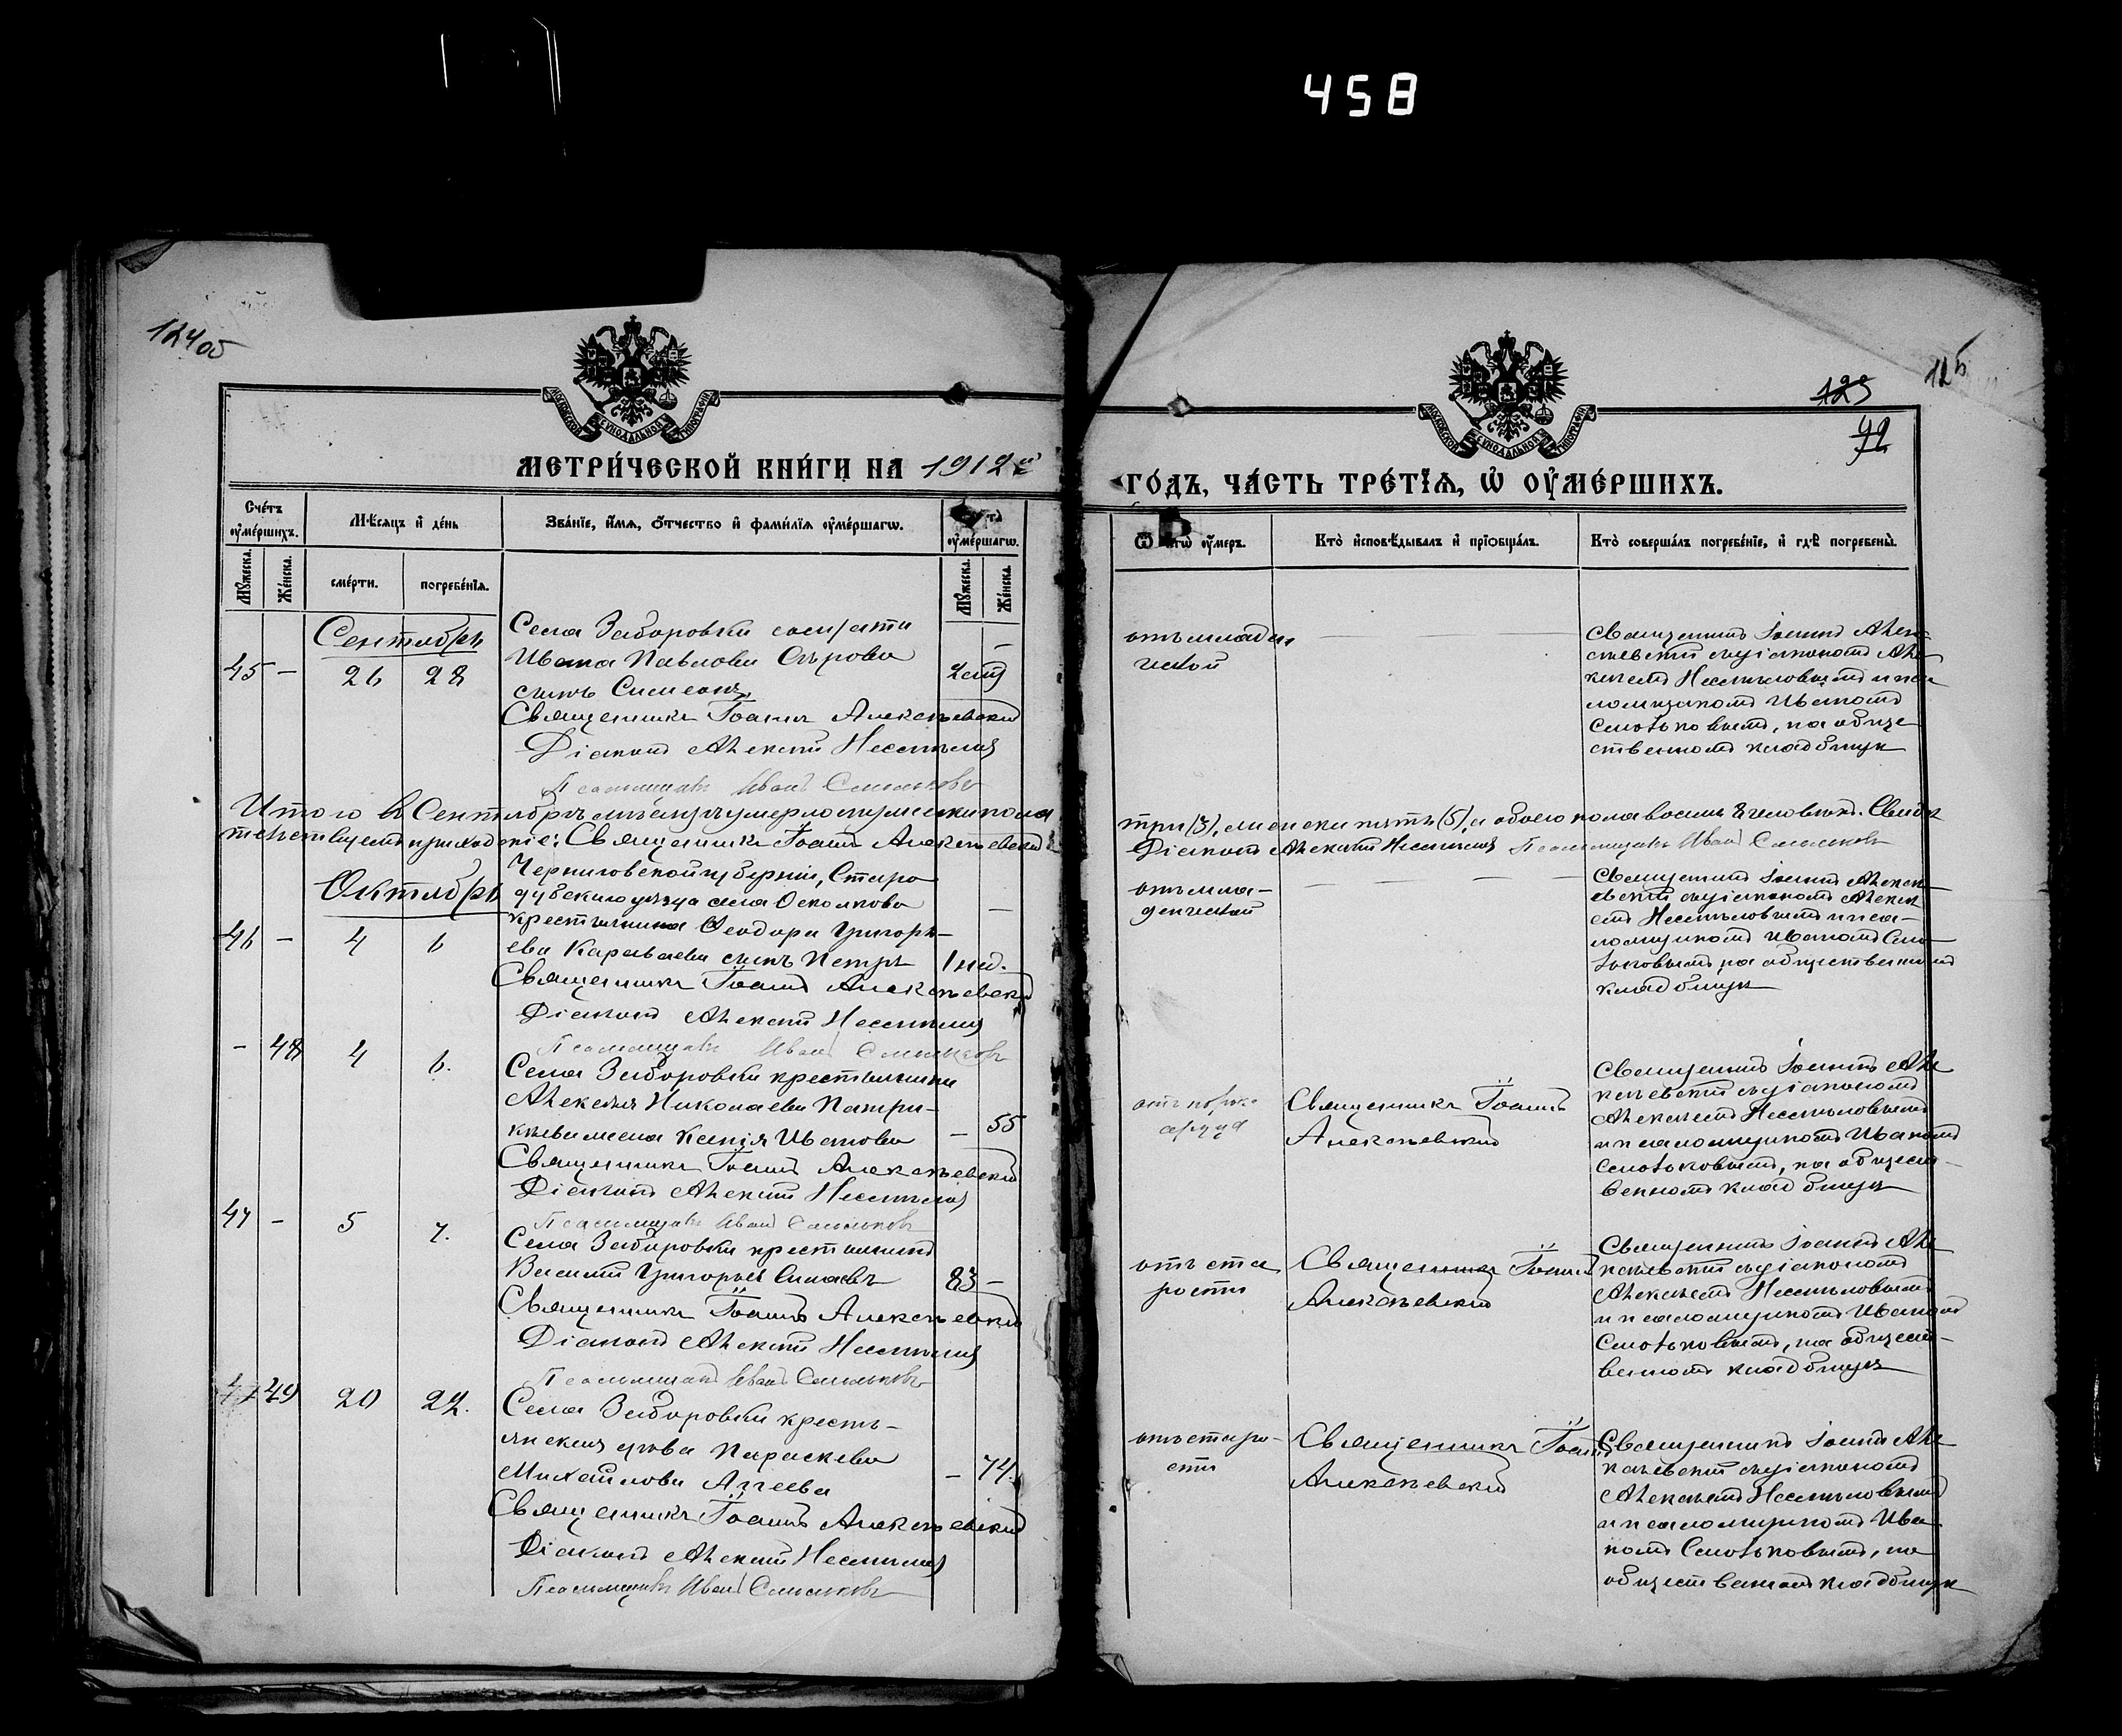 458
124об
125
МЕТРИ́ЧЕСКОЙ КНИ́ГИ НА 1912й
ГО́ДЪ, ЧА́СТЬ ТРЕ́ТЇѦ, Ѽ ОУ҆МЕ́РШИХЪ.
Сче́тъ оу҆ме́ршихъ.
Мѣ́сѧцъ и҆ де́нь
Зва́нїе, и҆́мѧ, ѻ҆́тчество и҆ фами́лїѧ оу҆ме́ршагѡ.
оу҆ме́ршагѡ.
Мꙋ́жеска.
Же́нска.
сме́рти.
погребе́нїѧ.
Мꙋ́жеска.
Же́нска.
оу҆́меръ.
Кто̀ и҆сповѣ́дывалъ и҆ прїѡбща́лъ.
Кто̀ соверша́лъ погребе́нїе, и҆ гдѣ̀ погребены̀.
Сентябрь
45 - 26 28
Села Заборовки
Ивана Павлова Сѣрова
сынъ Симеонъ
Священникъ Іоаннъ Алексѣевскій
Діаконъ Алексѣй Несмѣловъ
Псаломщикъ Иванъ
отъ младен
ческой
Священникъ Іоаннъ Алек-
сѣевскій съ діакономъ Але
ксѣемъ Несмѣловымъ и пса
ломщикомъ Иваномъ
на обще
ственномъ кладбищѣ
Итого въ Сентябрѣ мѣсяцѣ умерло мужеска пола
три (3), женска пять (5), а обоего пола восемь 8 человѣкъ. Свидѣ
тельствуемъ Священникъ Іоаннъ Алексѣевскій
Діаконъ Алексѣй Несмѣловъ Псаломщикъ Иванъ
Октябрь
46 - 4 6
Черниговской губерніи, Старо
дубскаго уѣзда села Осколкова
крестьянина Ѳеодора Григорь-
ева Караваева сынъ Петръ 1 нед.
Священникъ Іоаннъ Алексѣевскій
Діаконъ Алексѣй Несмѣловъ
Псаломщикъ Иванъ
отъ мла-
денческой
Священникъ Іоаннъ Алексѣ
евскій съ діакономъ Алексѣ
емъ Несмѣловымъ и пса-
ломщикомъ Иваномъ
на общественномъ
кладбищѣ
- 48 4 6.
Села Заборовки крестьянина
Алексѣя Николаева Патри-
кѣева жена Ксенія Иванова - 55
Священникъ Іоаннъ Алексѣевскій
Діаконъ Алексѣй Несмѣловъ
Псаломщикъ Иванъ
отъ порока
сердца
Священникъ Іоаннъ
Алексѣевскій
Священникъ Іоаннъ Але
ксѣевскій съ діакономъ
Алексѣемъ Несмѣловымъ
и псаломщикомъ Иваномъ
на общест-
венномъ кладбищѣ
47 - 5 7.
Села Заборовки крестьянинъ
Василій Григорьевъ 83 -
Священникъ Іоаннъ Алексѣевскій
Діаконъ Алексѣй Несмѣловъ
Псаломщикъ Иванъ
отъ ста
рости
Священникъ Іоаннъ
Алексѣевскій
Священникъ Іоаннъ Але
ксѣевскій съ діакономъ
Алексѣемъ Несмѣловымъ
и псаломщикомъ Иваномъ
на общест-
венномъ кладбищѣ
49 20 22.
Села Заборовки кресть-
янская вдова Параскева
Михайлова Агеева - 74.
Священникъ Іоаннъ Алексѣевскій
Діаконъ Алексѣй Несмѣловъ
Псаломщикъ Иванъ
отъ старо-
сти
Священникъ Іоаннъ
Алексѣевскій
Священникъ Іоаннъ Але
ксѣевскій съ діакономъ
Алексѣемъ Несмѣловымъ
и псаломщикомъ Ива
номъ на
общественномъ кладбищѣ